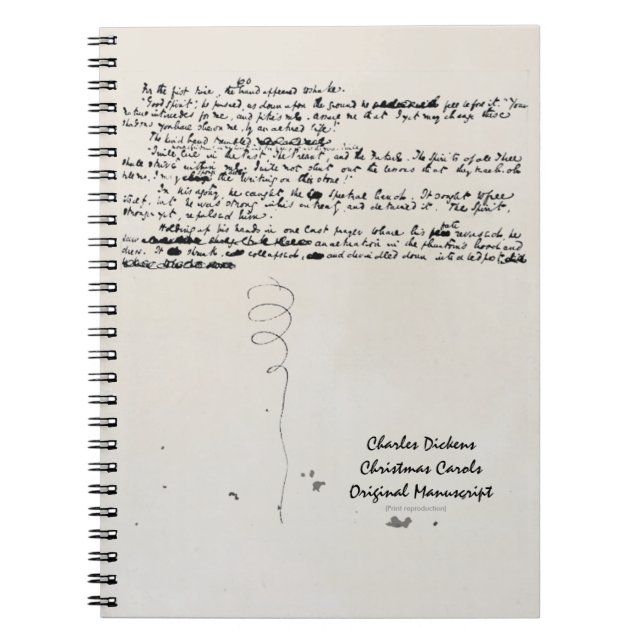 60
For the first time, the hand appeared to shake.
"Good Spirit;" he pursued, as down upon the ground he fell before it: "Your
nature intercedes for me, and pities me. Assure me that I yet may change these
shadows you have shewn me, by an altered life!"
The kind hand trembled.
"I will live in the Past, the Present, and the Future. The Spirits of all Three
shall strive within me. I will not shut out the lessons that they teach. Oh
tell me I may sponge away the writing on this stone!"
In his agony, he caught the spectral hand. It sought to free
itself, but he was strong in his entreaty, and detained it. The Spirit,
stronger yet, repulsed him.
Holding up his hands in one last prayer to have his fate reversed, he
saw an alteration in the phantom's hood and
dress. It shrunk, collapsed, and dwindled down into a bedpost.
Charles Dickens
Christmas Carols
Original Manuscript
(Print reproduction)